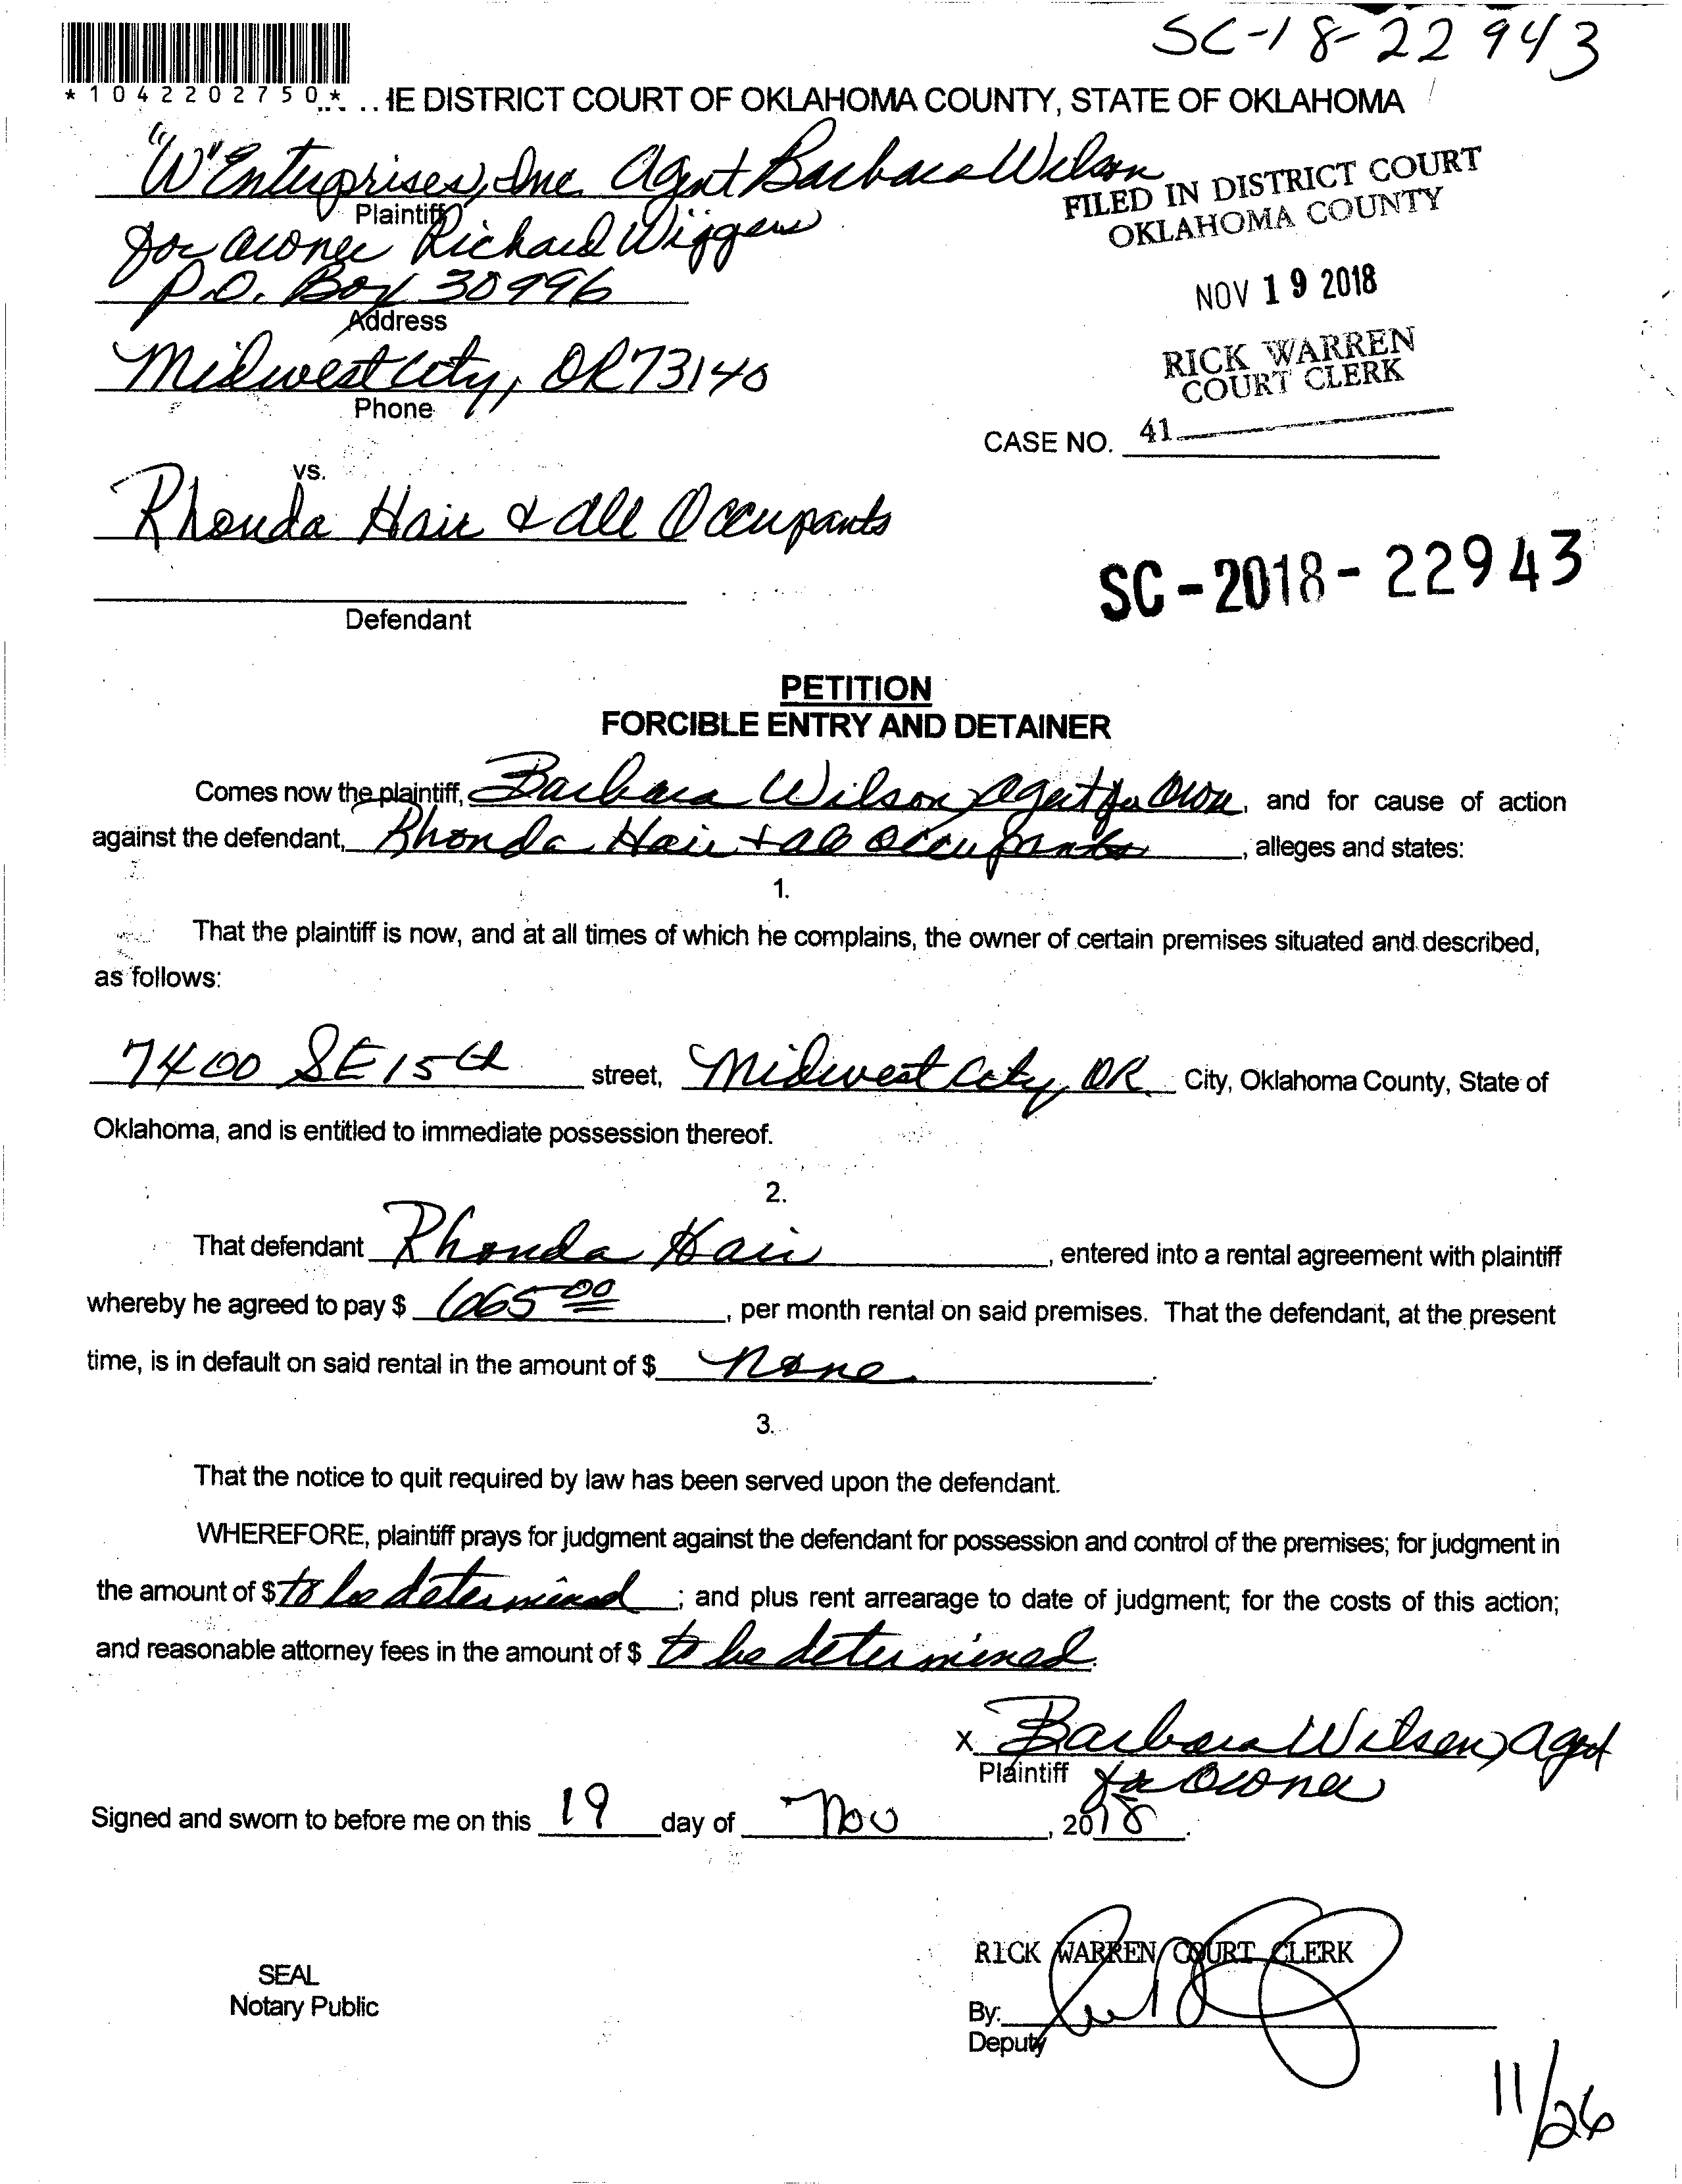 SC-18-22943
*1042202750*
..HE DISTRICT COURT OF OKLAHOMA COUNTY, STATE OF OKLAHOMA
"W" Enterprises, Inc. Agent Barbara Wilson
Plaintiff
for owner Richard Wiggers
P.O. Box 30996
Address
Midwest City, OK 73140
Phone
FILED IN DISTRICT COURT
OKLAHOMA COUNTY
NOV 19 2018
RICK WARREN
COURT CLERK
CASE NO. 41
vs.
Rhonda Hair & all Occupants
Defendant
SC-2018-22943
PETITION
FORCIBLE ENTRY AND DETAINER
Comes now the plaintiff, Barbara Wilson, agent for Own, and for cause of action
against the defendant, Rhonda Hair + all occupants, alleges and states:
1.
That the plaintiff is now, and at all times of which he complains, the owner of certain premises situated and described,
as follows:
7400 SE 15th street, Midwest City, OK City, Oklahoma County, State of
Oklahoma, and is entitled to immediate possession thereof.
2.
That defendant Rhonda Hair, entered into a rental agreement with plaintiff
whereby he agreed to pay $ , per month rental on said premises. That the defendant, at the present
time, is in default on said rental in the amount of $ None.
3.
That the notice to quit required by law has been served upon the defendant.
WHEREFORE, plaintiff prays for judgment against the defendant for possession and control of the premises; for judgment in
the amount of $ to be determined; and plus rent arrearage to date of judgment; for the costs of this action;
and reasonable attorney fees in the amount of $ to be determined.
X Barbara Wilson, agent
Plaintiff for owner
Signed and sworn to before me on this 19 day of Nov, 2018.
RICK WARREN COURT CLERK
SEAL
Notary Public
By:
Deputy
11/26